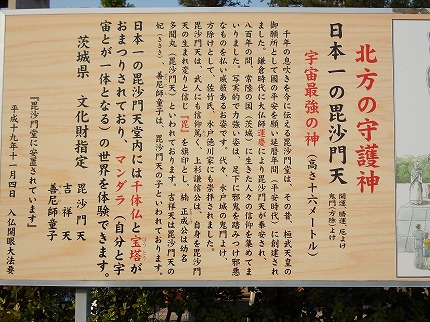 北方の守護神
日本一の毘沙門天
開運 勝運 厄よけ
鬼門(方除)よけ
宇宙最強の神(高さ十六メートル)
千年の息吹きを今に伝える毘沙門堂は、その昔、桓武天皇の
御願所として国の平安を願い延暦年間(平安時代)に創建され
ました。鎌倉時代に大仏師運慶により毘沙門天が奉安され、
八百年の間、常陸の国(茨城)に生きた人々の信仰を集めてま
いりました。写実的で力強い姿は、足下に邪鬼を踏みつけ邪悪
なものを払い威厳あるお姿で、代々、水戸城の鬼門よけ、
方除けとして、佐竹氏、水戸徳川家にも崇拝されました。
毘沙門天は、武人にも信仰篤く、上杉謙信公は、自身を毘沙門
天の生まれ変りと信じ『毘』を旗印とし、楠正成公は幼名
多聞丸(毘沙門天)といわれております。吉祥天は毘沙門天の
妃(きさき)、善尼師童子は、毘沙門天の子といわれております。
日本一の毘沙門天堂内には千体仏と宝塔が
おまつりされており、マンダラ(自分と宇
宙とが一体となる)の世界を体験できます。
茨城県 文化財指定
毘沙門天
吉祥天
善尼師童子
『毘沙門堂に安置されています』
平成十九年十一月四日 入仏開眼大法要